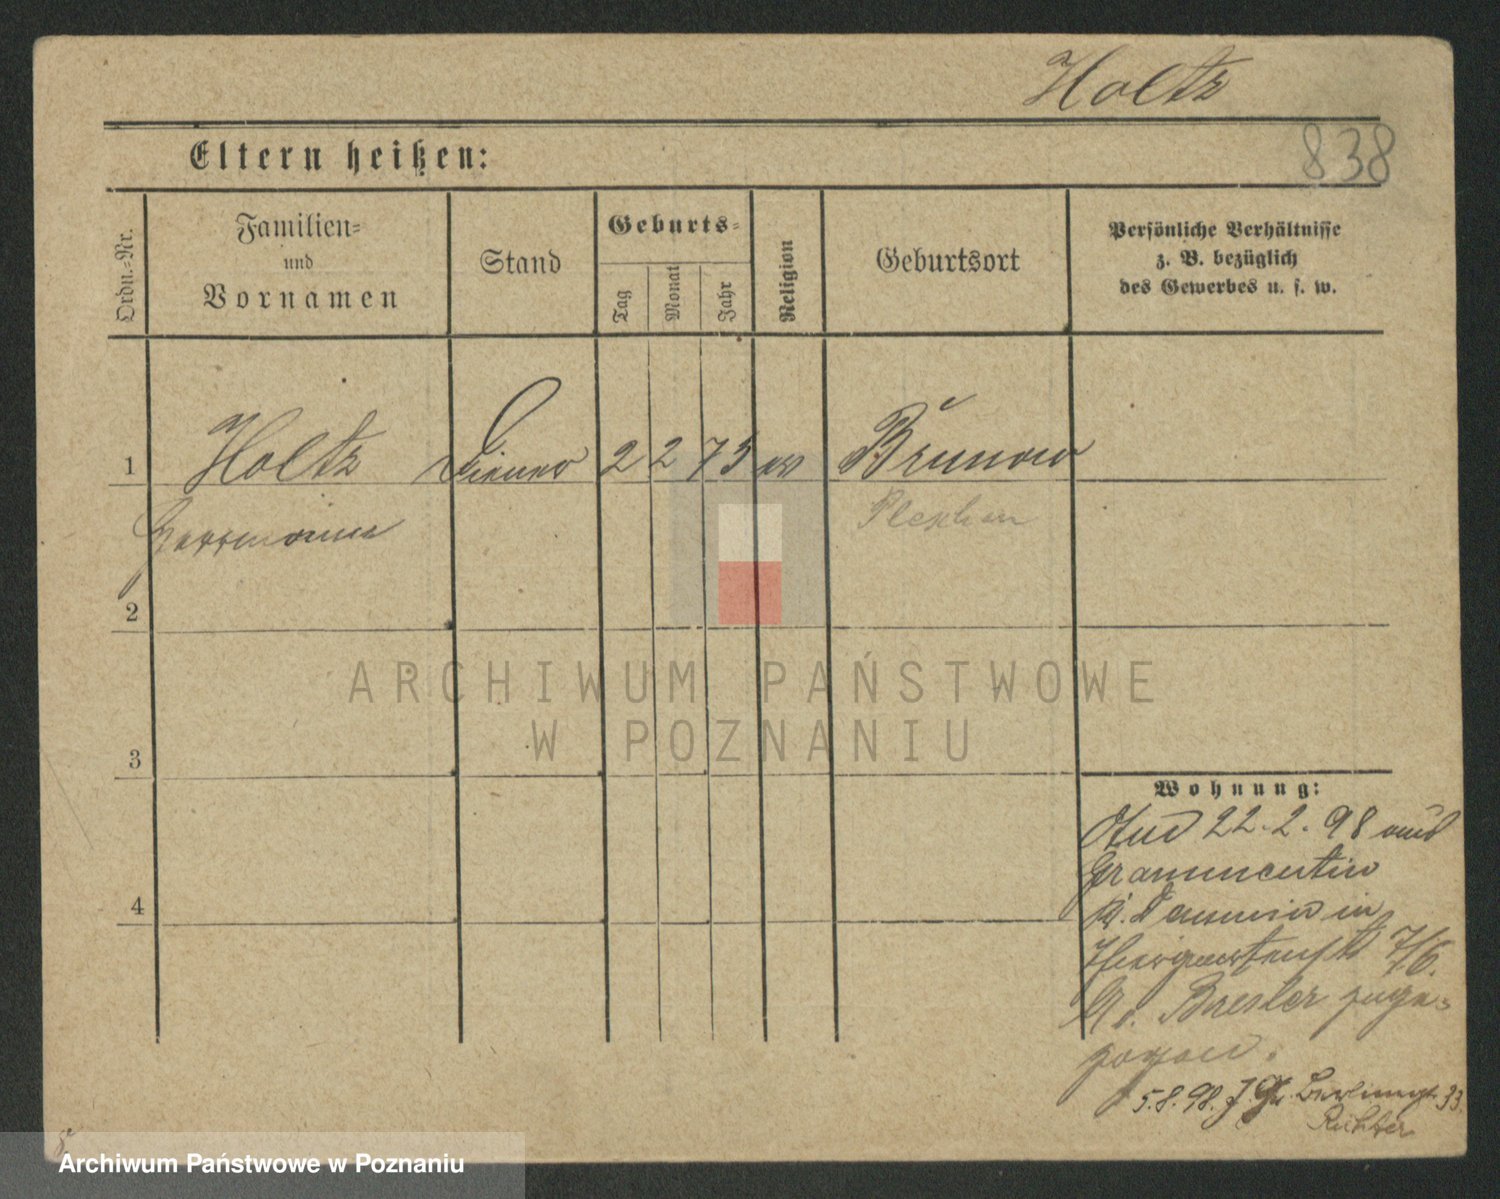 Holtz
838
Eltern heißen:
Ordn.-Nr.
Familien-
und
Vornamen
Stand
Geburts-
Tag
Monat
Jahr
Religion
Geburtsort
Persönliche Verhältnisse
z. B. bezüglich
des Gewerbes u. s. w.
1
Holtz Diener 2 2 73 ev Brunow
Herrmann Pleschen
2
3
4
ARCHIWUM PAŃSTWOWE
W POZNANIU
Wohnung:
22. 2. 98 aus
Grammentin
in
7/6.
v. Bresler zuge-
zogen.
5.8.98. Berlinerstr. 33.
Richter
Archiwum Państwowe w Poznaniu